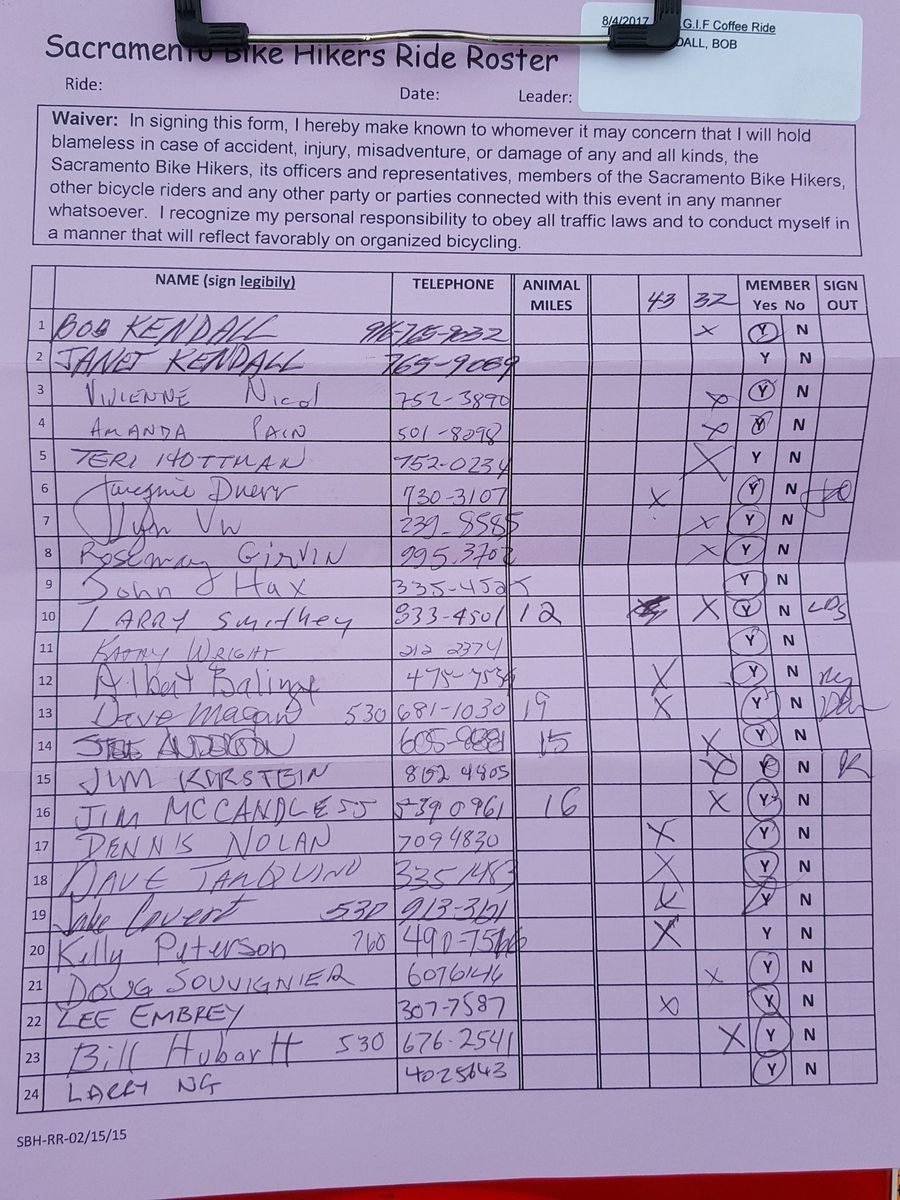 8/4/2017 .G.I.F Coffee Ride
DALL, BOB
Sacramento Bike Hikers Ride Roster
Ride: Date: Leader:
Waiver: In signing this form, I hereby make known to whomever it may concern that I will hold
blameless in case of accident, injury, misadventure, or damage of any and all kinds, the
Sacramento Bike Hikers, its officers and representatives, members of the Sacramento Bike Hikers,
other bicycle riders and any other party or parties connected with this event in any manner
whatsoever. I recognize my personal responsibility to obey all traffic laws and to conduct myself in
a manner that will reflect favorably on organized bicycling.
NAME (sign legibily) TELEPHONE ANIMAL MILES 43 32 MEMBER Yes No SIGN OUT
1 BOB KENDALL 916-765-9032 X Y N
2 JANET KENDALL 765-9069 Y N
3 VIVIENNE Nicol 752-3890 X Y N
4 AMANDA PAIN 501-8098 X Y N
5 TERI HOTTMAN 752-0234 X Y N
6 Duerr 730-3107 X Y N
7 239-8585 X Y N
8 Rosemary GIRVIN 995-3702 X Y N
9 John J Hax 335-4525 Y N
10 LARRY Smithey 933-4501 12 X Y N
11 KATHY WRIGHT 212 2374 Y N
12 Albert X Y N
13 Dave Magan 530 681-1030 19 X Y N
14 ANDERSON 15 X Y N
15 JIM KIRSTEIN 802 4805 X Y N
16 JIM MCCANDLESS 5390961 16 X Y N
17 DENNIS NOLAN 7094830 X Y N
18 DAVE TANQUINO 335 1483 X Y N
19 Jake Covert 530 913-3101 X Y N
20 Kelly Peterson 760 490-7566 X Y N
21 DOUG SOUVIGNIER X Y N
22 LEE EMBREY 307-7587 X Y N
23 Bill Hubartt 530 676-2541 X Y N
24 LARRY NG 4025643 Y N
SBH-RR-02/15/15